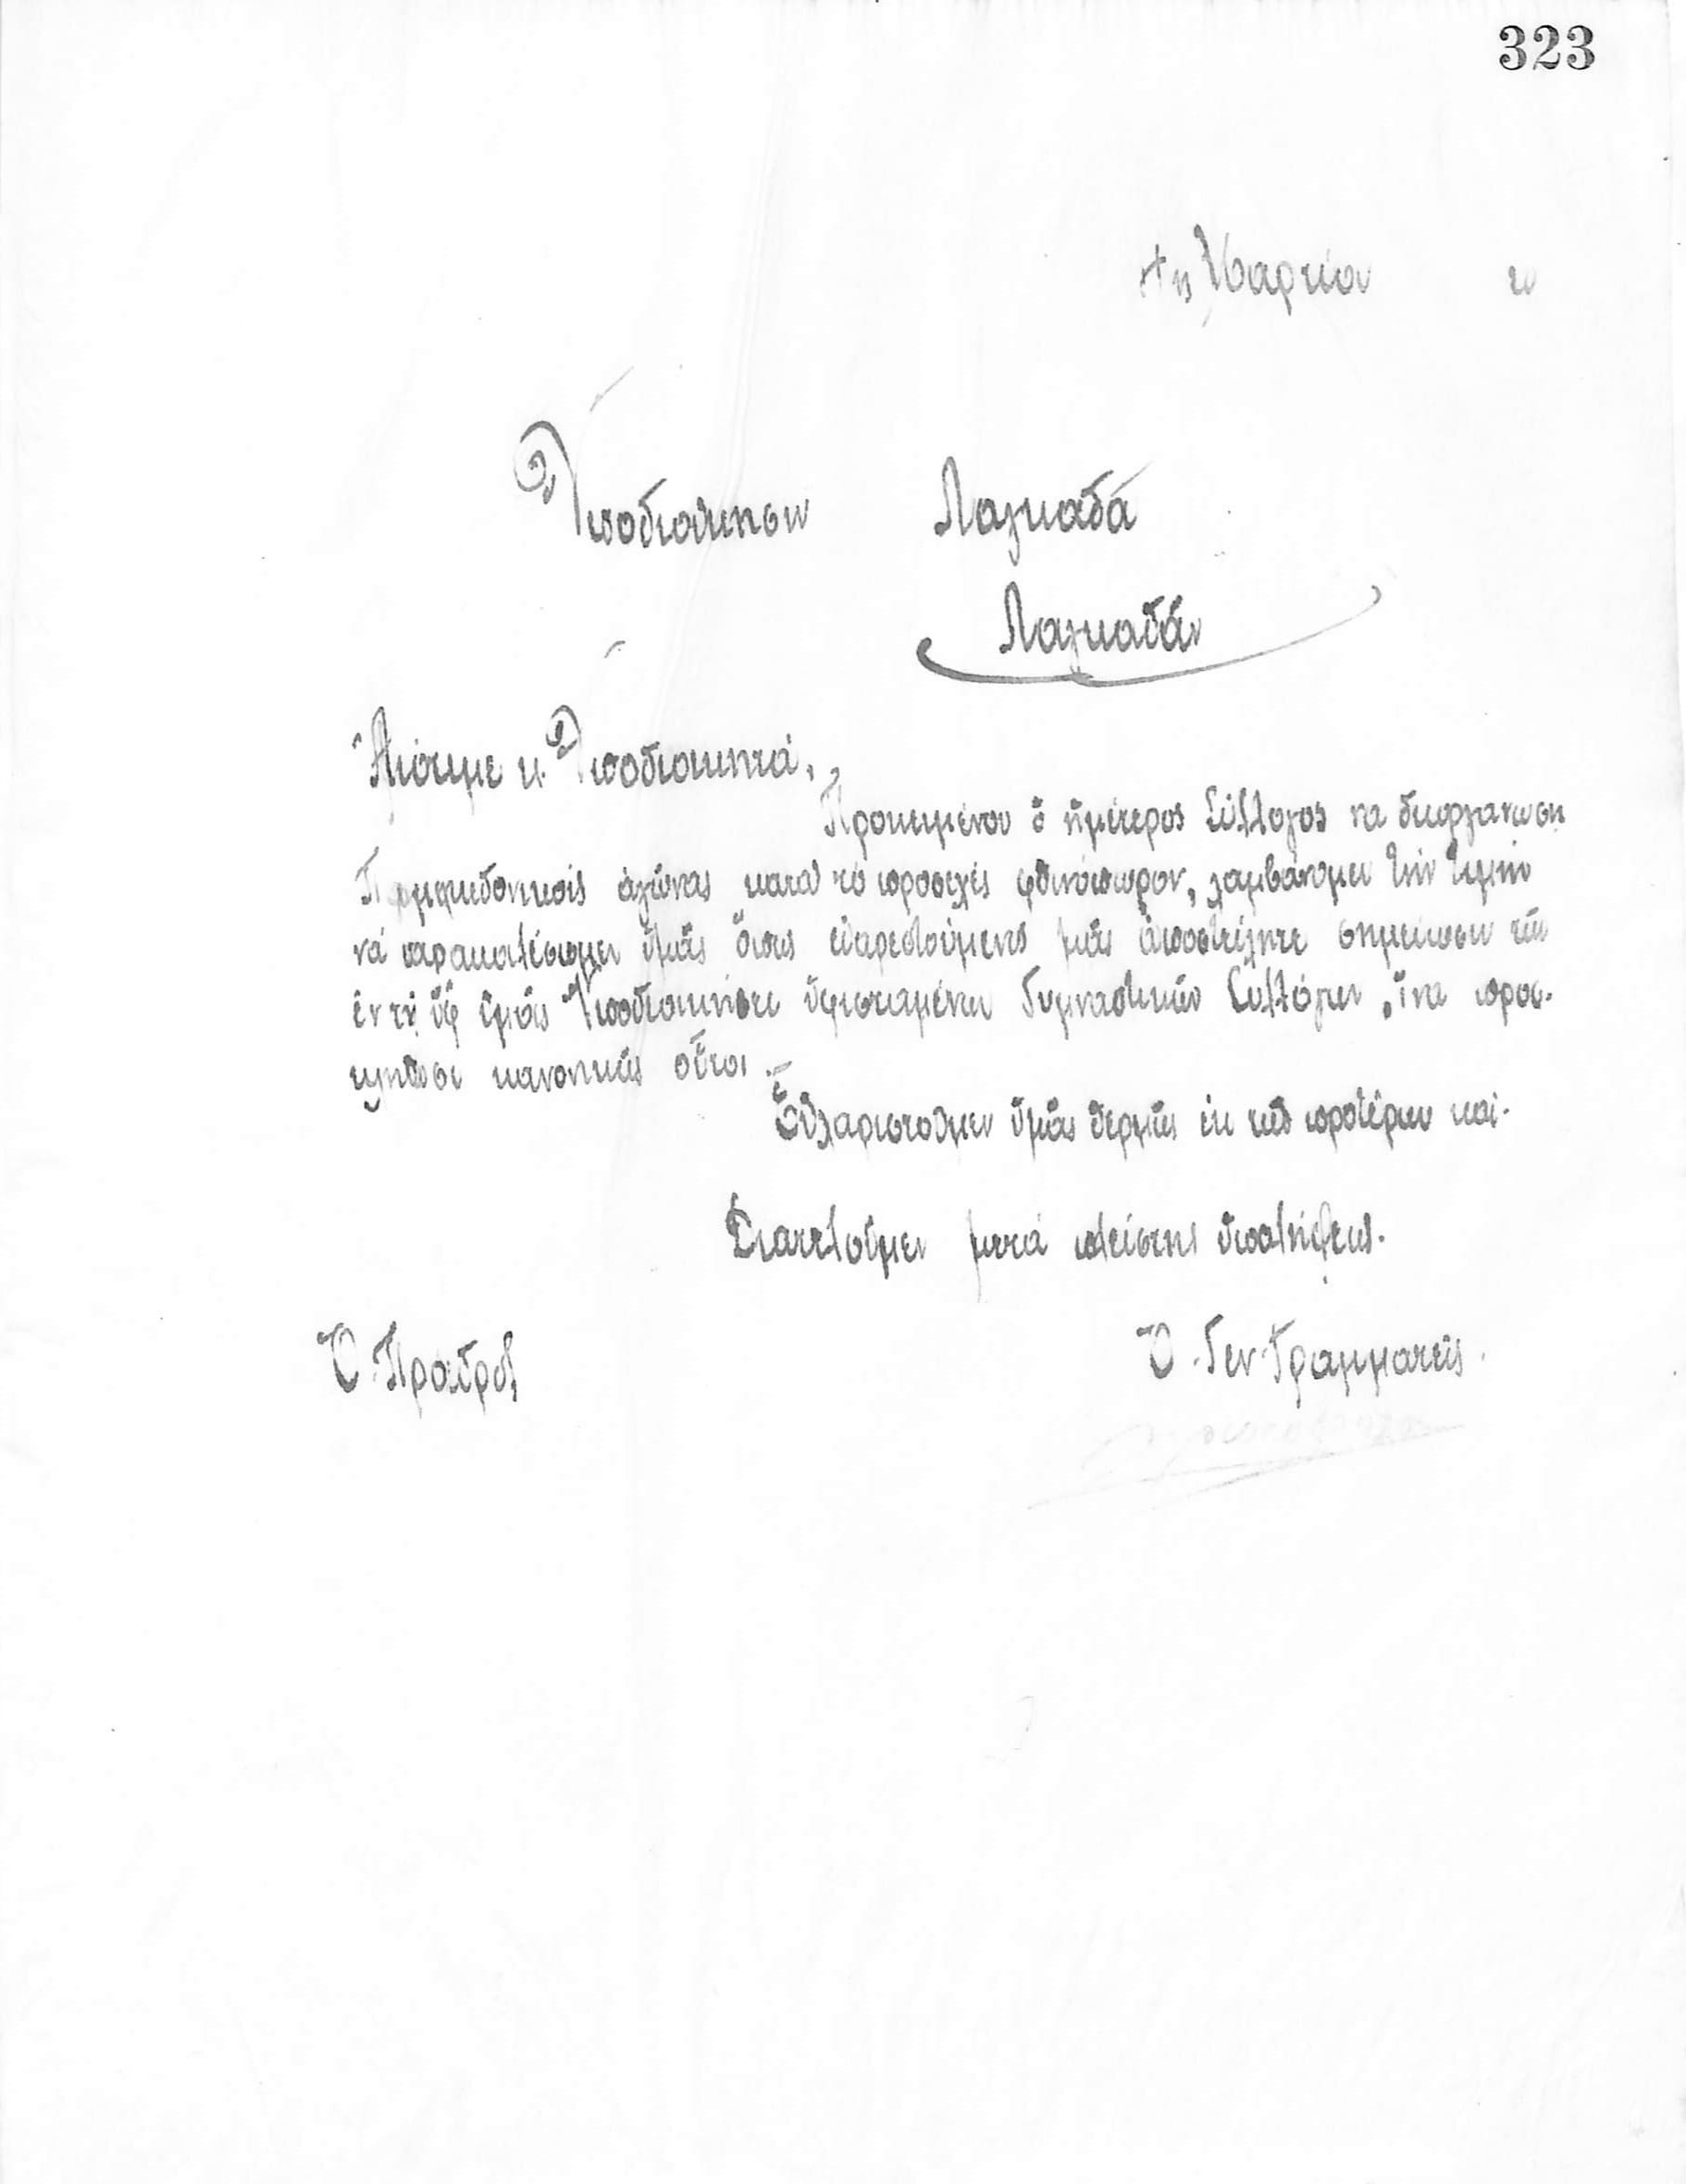 323
Μαρτίου
Ὑποδιοίκησιν Λαγκαδᾶ
Λαγκαδᾶν
Ἀξιότιμε κ. Ὑποδιοικητά,
Προκειμένου ὁ ἡμέτερος Σύλλογος να διοργανώσῃ
Παμμακεδονικούς ἀγῶνας κατά τό προσεχές φθινόπωρον, λαμβάνομεν τήν τιμήν
νά παρακαλέσωμεν ὑμᾶς ὅπως εὐαρεστούμενος μᾶς ἀποστείλητε σημείωσιν τῶν
ἐν τῇ ὑφ' ὑμᾶς Ὑποδιοικήσει ὑφισταμένων Γυμναστικῶν Συλλόγων, ἵνα προσ-
κληθῶσι κανονικῶς οὗτοι.-
Εὐχαριστοῦμεν ὑμᾶς θερμῶς ἐκ τῶν προτέρων καί.
Διατελοῦμεν μετά πλείστης ὑπολήψεως.
Ὁ Πρόεδρος
Ὁ Γεν. Γραμματεύς.